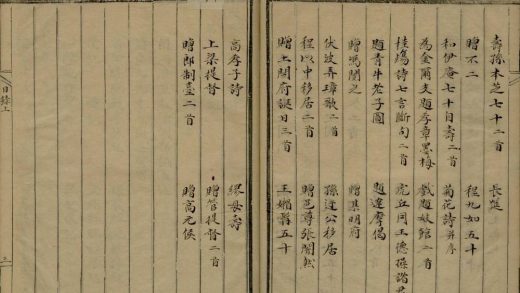 壽孫木芝七十二首 長歌
贈不二 程九如五十
和伊庵七十自壽二首 菊花詩并序
為金爾支題李章墨梅 戲題妓館二首
桂殤詩七言斷句二首 虎丘同王德操諧
題青牛老子圖 題達摩偈
贈馮閒之 贈集明府
伏波弄璋歌二首 孫達公移居
程以中移居二首 贈邑尊張闇然
贈土開府誕日三首 王媚翳五十
高孝子詩 繆母壽
上梁提督 贈管提督二首
贈郎制臺二首 贈高元侯
目錄上